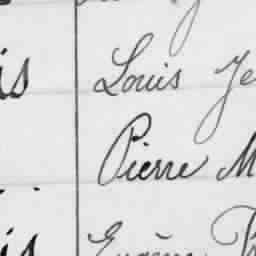 is Louis Je
Pierre M
is Eugène